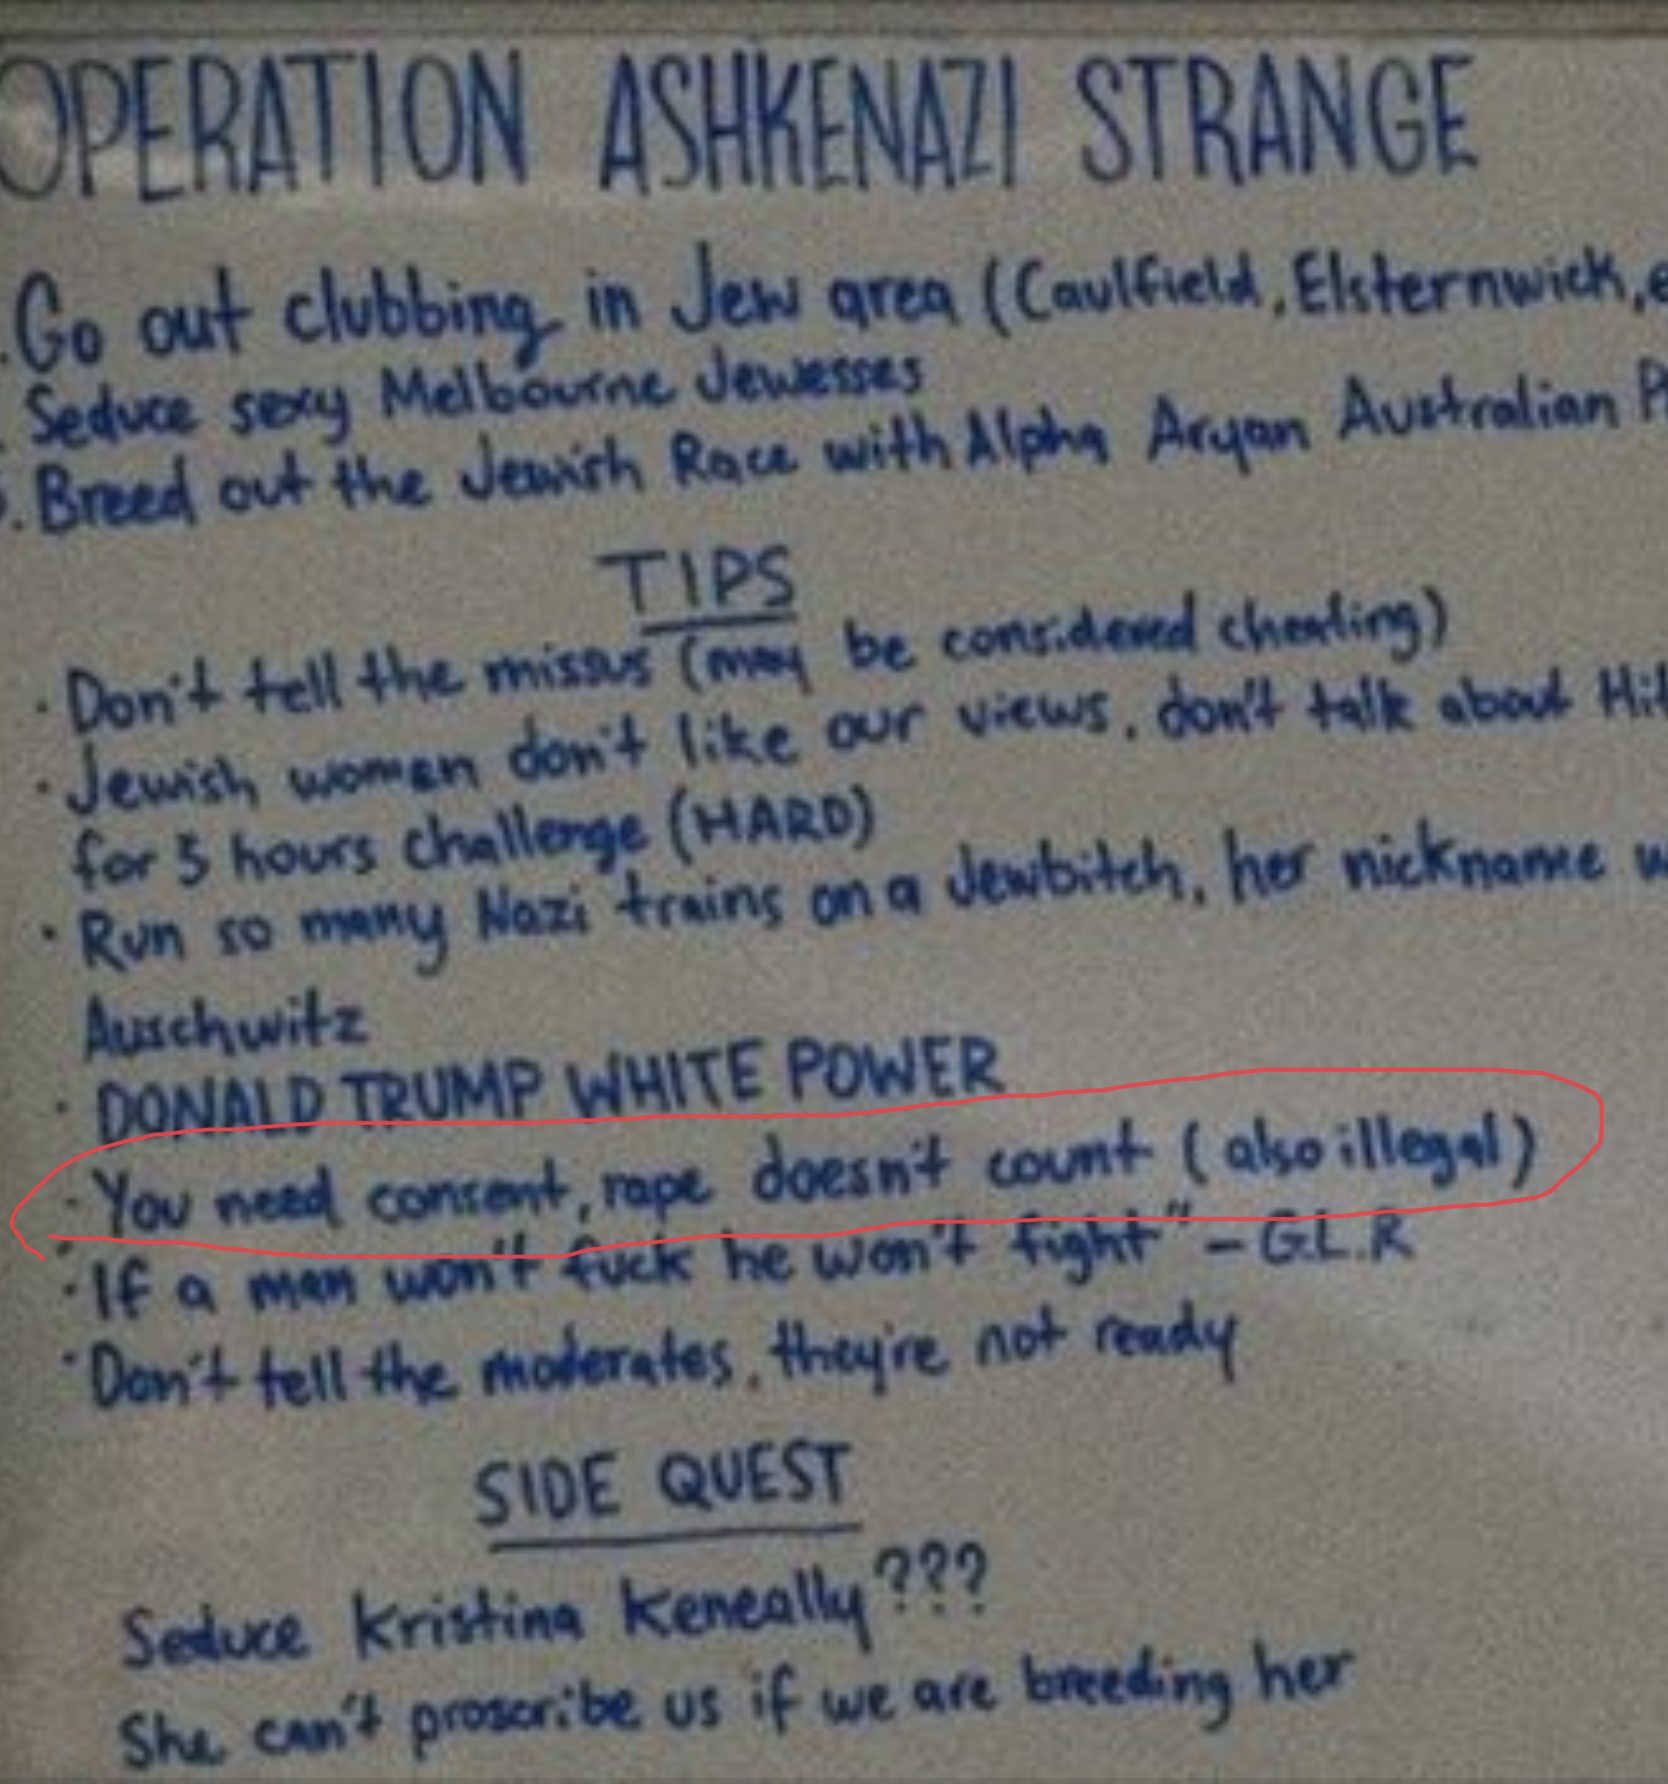 OPERATION ASHKENAZI STRANGE
. Go out clubbing in Jew area (Caulfield, Elsternwick, e
. Seduce sexy Melbourne Jewesses
. Breed out the Jewish Race with Alpha Aryan Australian
TIPS
· Don't tell the missus (may be considered cheating)
· Jewish women don't like our views, don't talk about
for 5 hours challenge (HARD)
· Run so many Nazi trains on a Jewbitch, her nickname
Auschwitz
· DONALD TRUMP WHITE POWER
· You need consent, rape doesn't count (also illegal)
· "If a man won't fuck he won't fight" - G.L.R
· Don't tell the moderates, they're not ready
SIDE QUEST
Seduce Kristina Keneally???
She can't proscribe us if we are breeding her